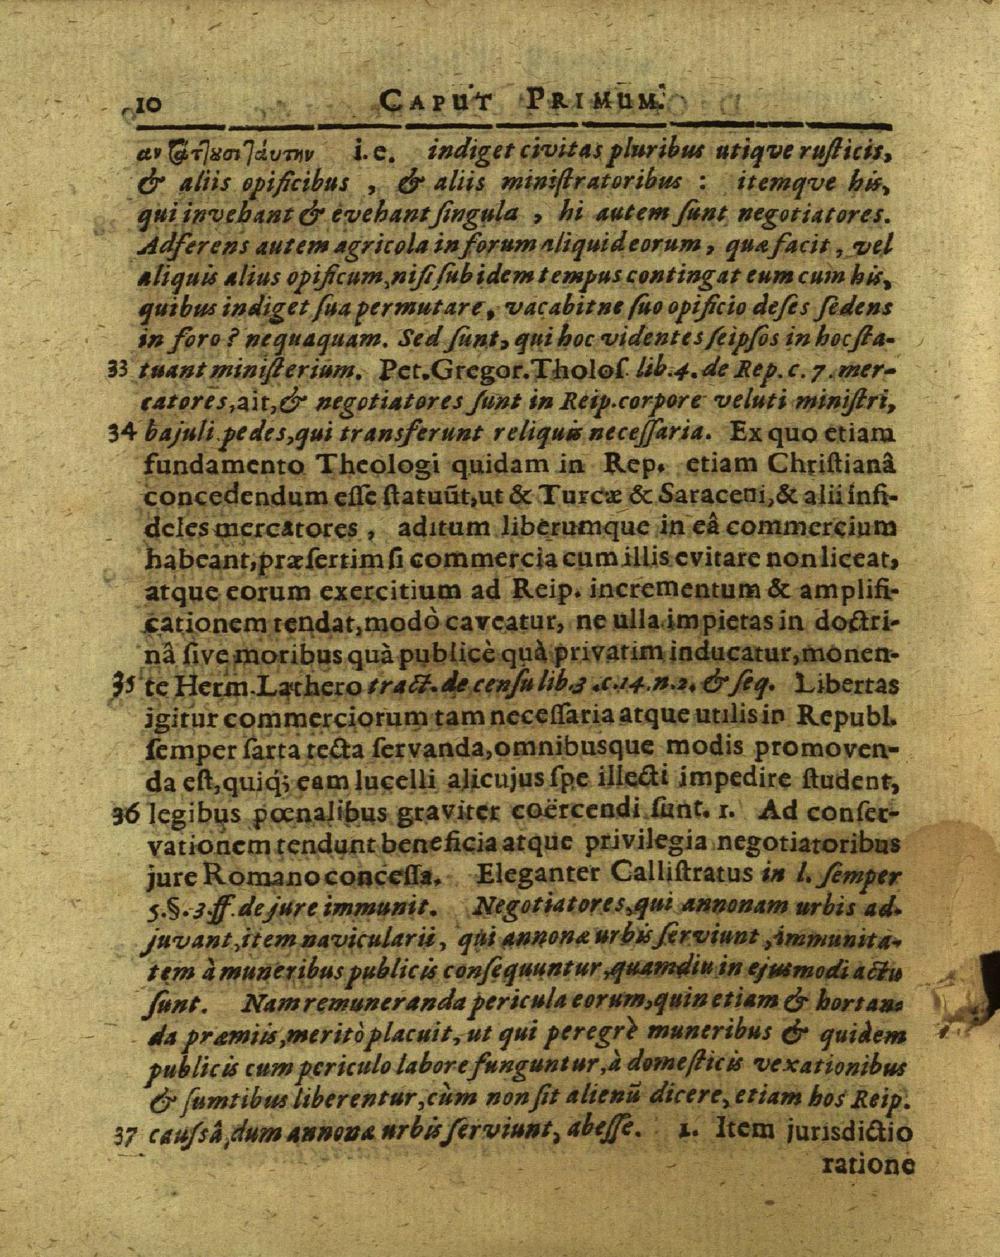 10 CAPUT PRIMUM.
i.e. indiget civitas pluribus utiqve ruſticis,
& aliis opificibus , & aliis miniſtratoribus : itemqve his,
qui invehant & evehant ſingula , hi autem ſunt negotiatores.
Adferens autem agricola in forum aliquid eorum, quæ facit, vel
aliquis alius opificum, niſi ſub idem tempus contingat eum cum his,
quibus indiget ſua permutare, vacabitne ſuo opificio deſes ſedens
in foro ? nequaquam. Sed ſunt, qui hoc videntes ſeipſos in hoc ſta-
33 tuant miniſterium. Pet. Gregor. Tholoſ lib. 4. de Rep. c. 7. mer-
catores, ait, & negotiatores ſunt in Reip. corpore veluti miniſtri,
34 bajuli pedes, qui transferunt reliquis neceſſaria. Ex quo etiam
fundamento Theologi quidam in Rep. etiam Chriſtianâ
concedendum eſſe ſtatuūt, ut & Turcæ & Saraceni, & alii infi-
deles mercatores , aditum liberumque in eâ commercium
habeant, præſertim ſi commercia cum illis evitare non liceat,
atque eorum exercitium ad Reip. incrementum & amplifi-
cationem tendat, modò caveatur, ne ulla impietas in doctri-
nâ ſive moribus quà publicè quà privatim inducatur, monen-
35 te Herm. Lathero tract. de cenſu lib. 3 . c. 14. n. 2. & ſeq. Libertas
igitur commerciorum tam neceſſaria atque utilis in Republ.
ſemper ſarta tecta ſervanda, omnibusque modis promoven-
da eſt, quiq; eam lucelli alicujus ſpe illecti impedire ſtudent,
36 legibus pœnalibus graviter coërcendi ſunt. 1. Ad conſer-
vationem tendunt beneficia atque privilegia negotiatoribus
jure Romano conceſſa. Eleganter Calliſtratus in l. ſemper
5. §. 3. ff. de jure immunit. Negotiatores, qui annonam urbis ad-
juvant, item navicularii, qui annonæ urbis ſerviunt, immunita-
tem à muneribus publicis conſequuntur, quamdiu in ejusmodi actu
ſunt. Nam remuneranda pericula eorum, quin etiam & hortan-
da præmiis, meritò placuit, ut qui peregrè muneribus & quidem
publicis cum periculo labore funguntur, à domeſticis vexationibus
& ſumtibus liberentur, cùm non ſit alienū dicere, etiam hos Reip.
37 cauſsâ, dum annonæ urbis ſerviunt, abeſſe. 1. Item jurisdictio
ratione